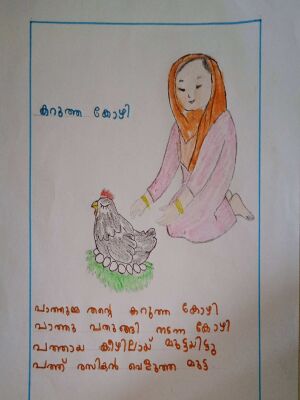 കറുത്ത കോഴി
പാത്തുമ്മ തന്റെ കറുത്ത കോഴി
പാത്തു പതുങ്ങി നടന്ന കോഴി
പത്തായ കീഴിലായ് മുട്ടയിട്ടു
പത്ത് രസികൻ വെളുത്ത മുട്ട